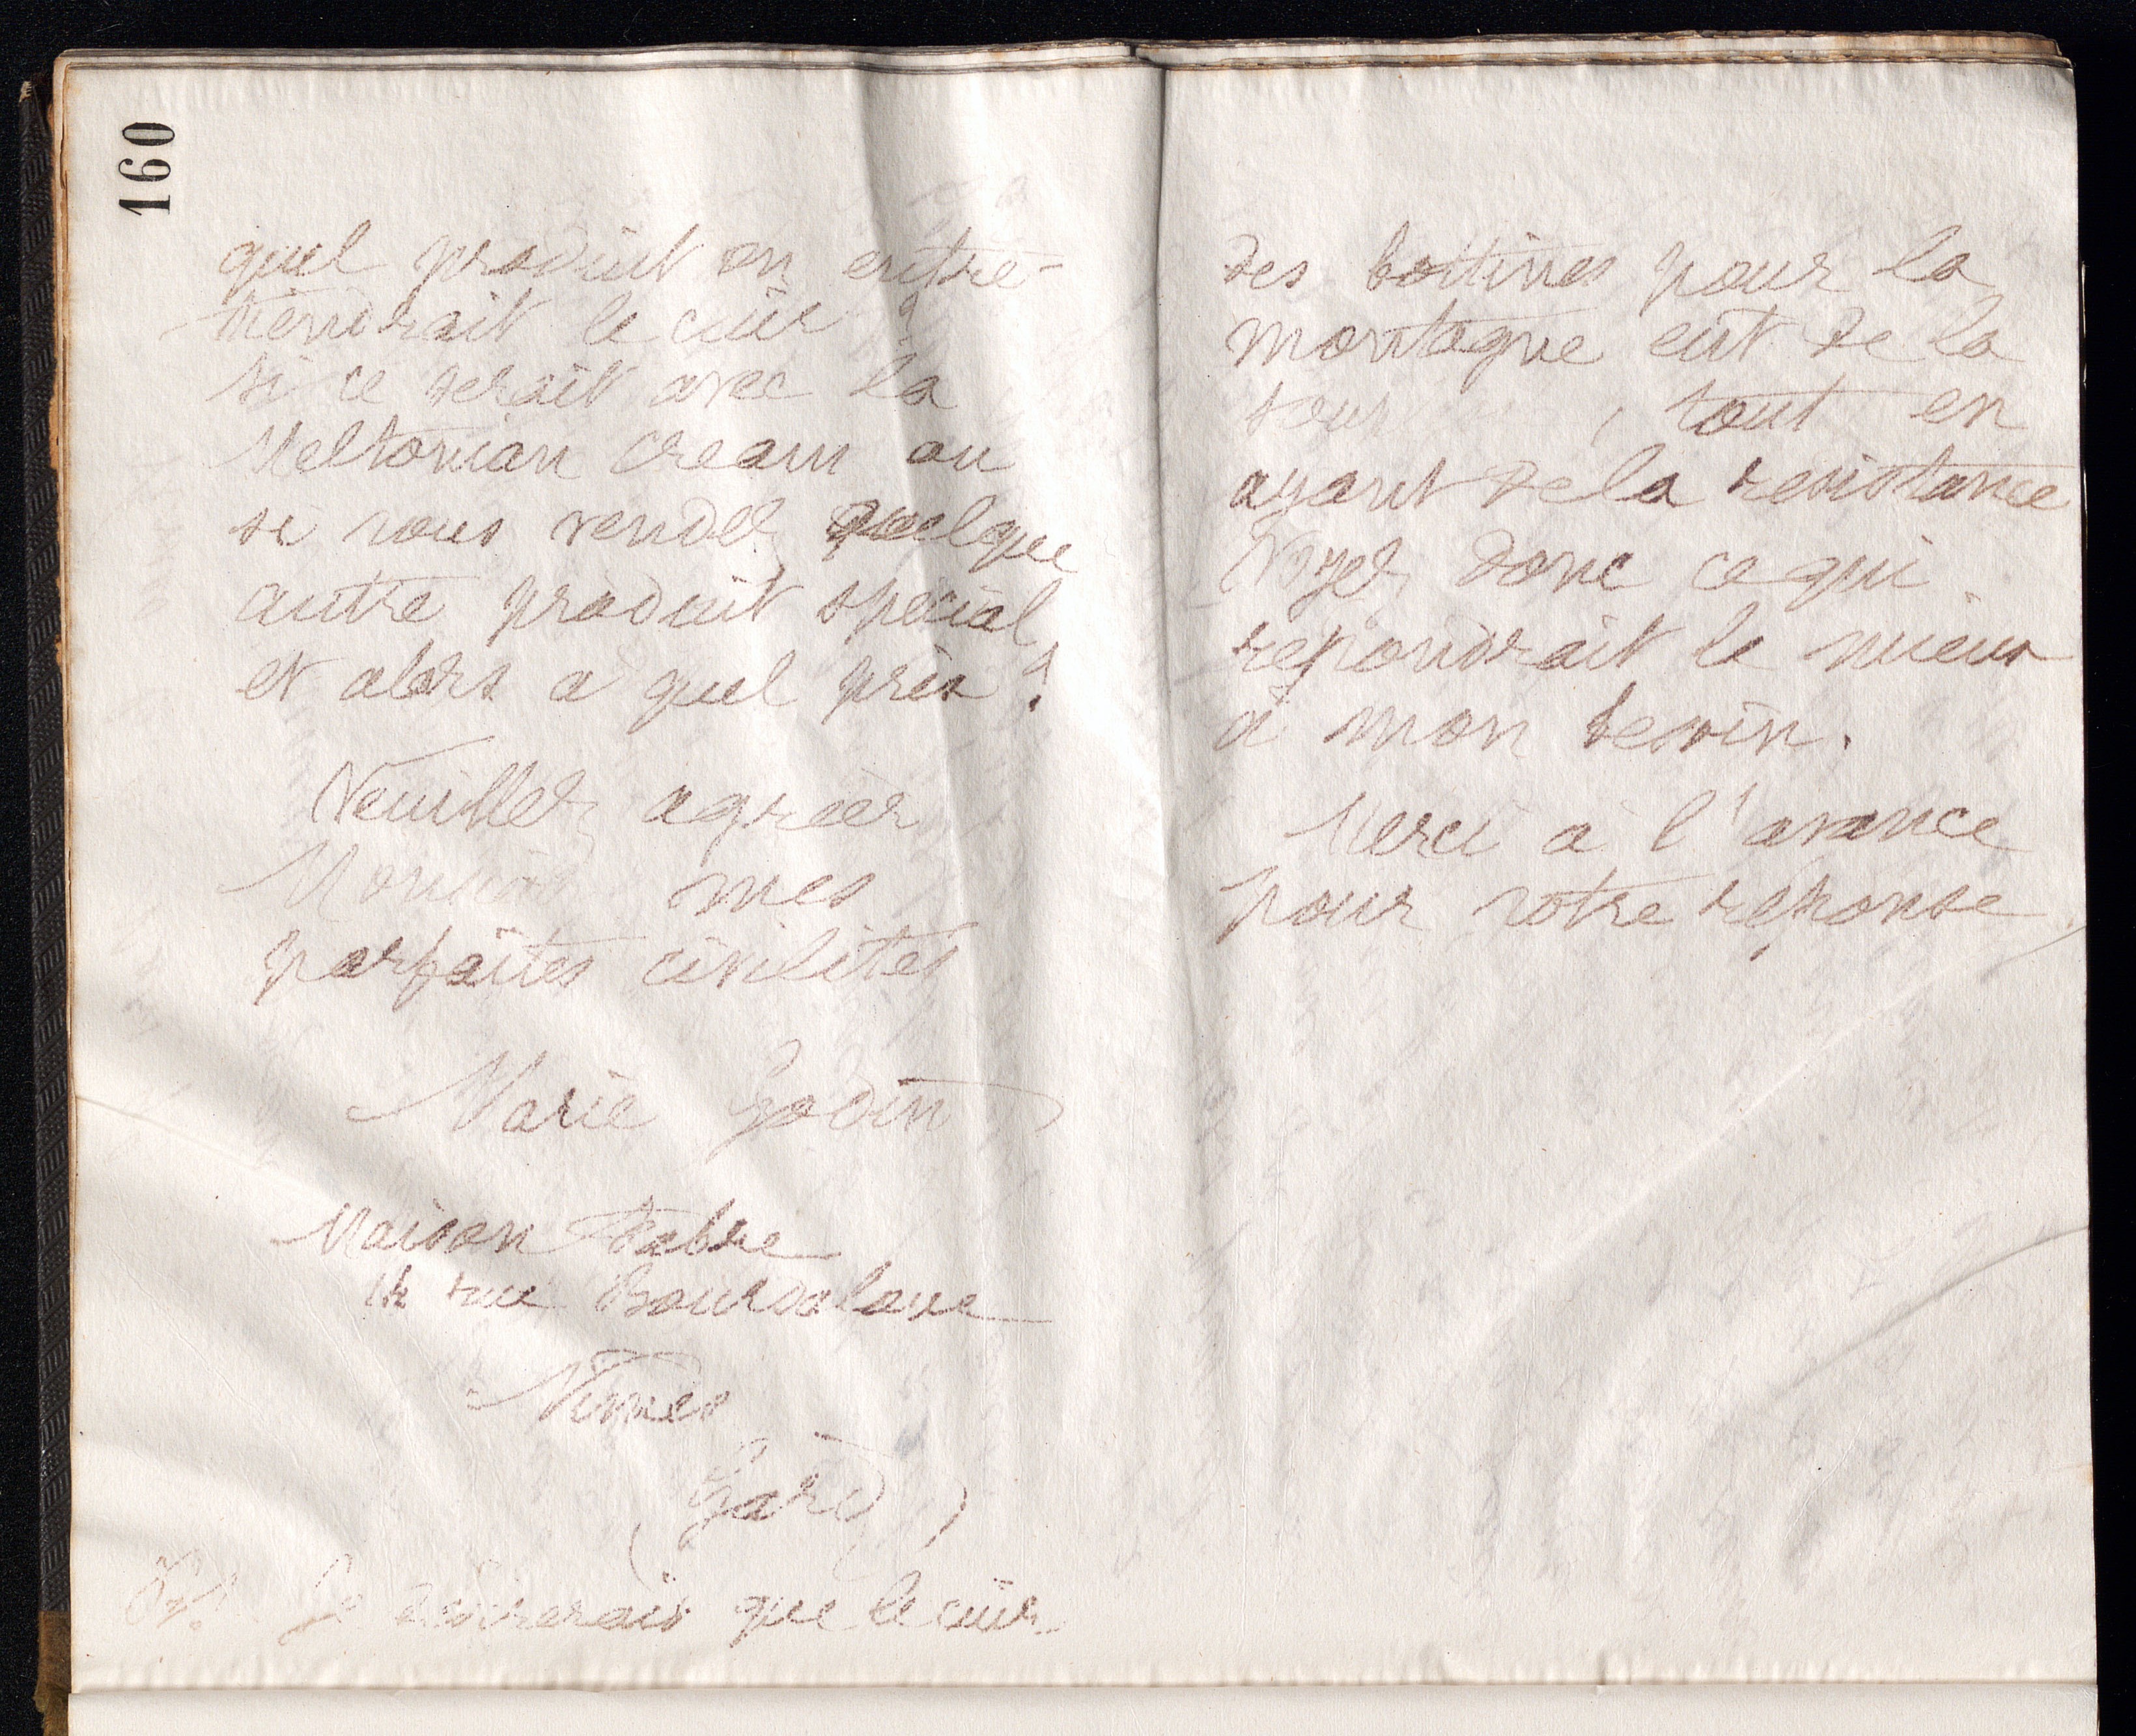 160
quel produit on entre-
tiendrait le cuir ?
si ce serait avec la
Meltonian cream ou
si vous vendez quelque
autre produit spécial
et alors a quel prix ?
Veuillez agréer
Monsieur mes
parfaites civilités
Marie Godin
Maison Fabre
rue Bourdaloue
Nimes
(Gard)
Je désirerais que le cuir
des bottines pour la
montagne eut de la
, tout en
ayant de la resistance
Voyez donc ce qui
repondrait le mieux
à mon
Merci à l'avance
pour votre reponse